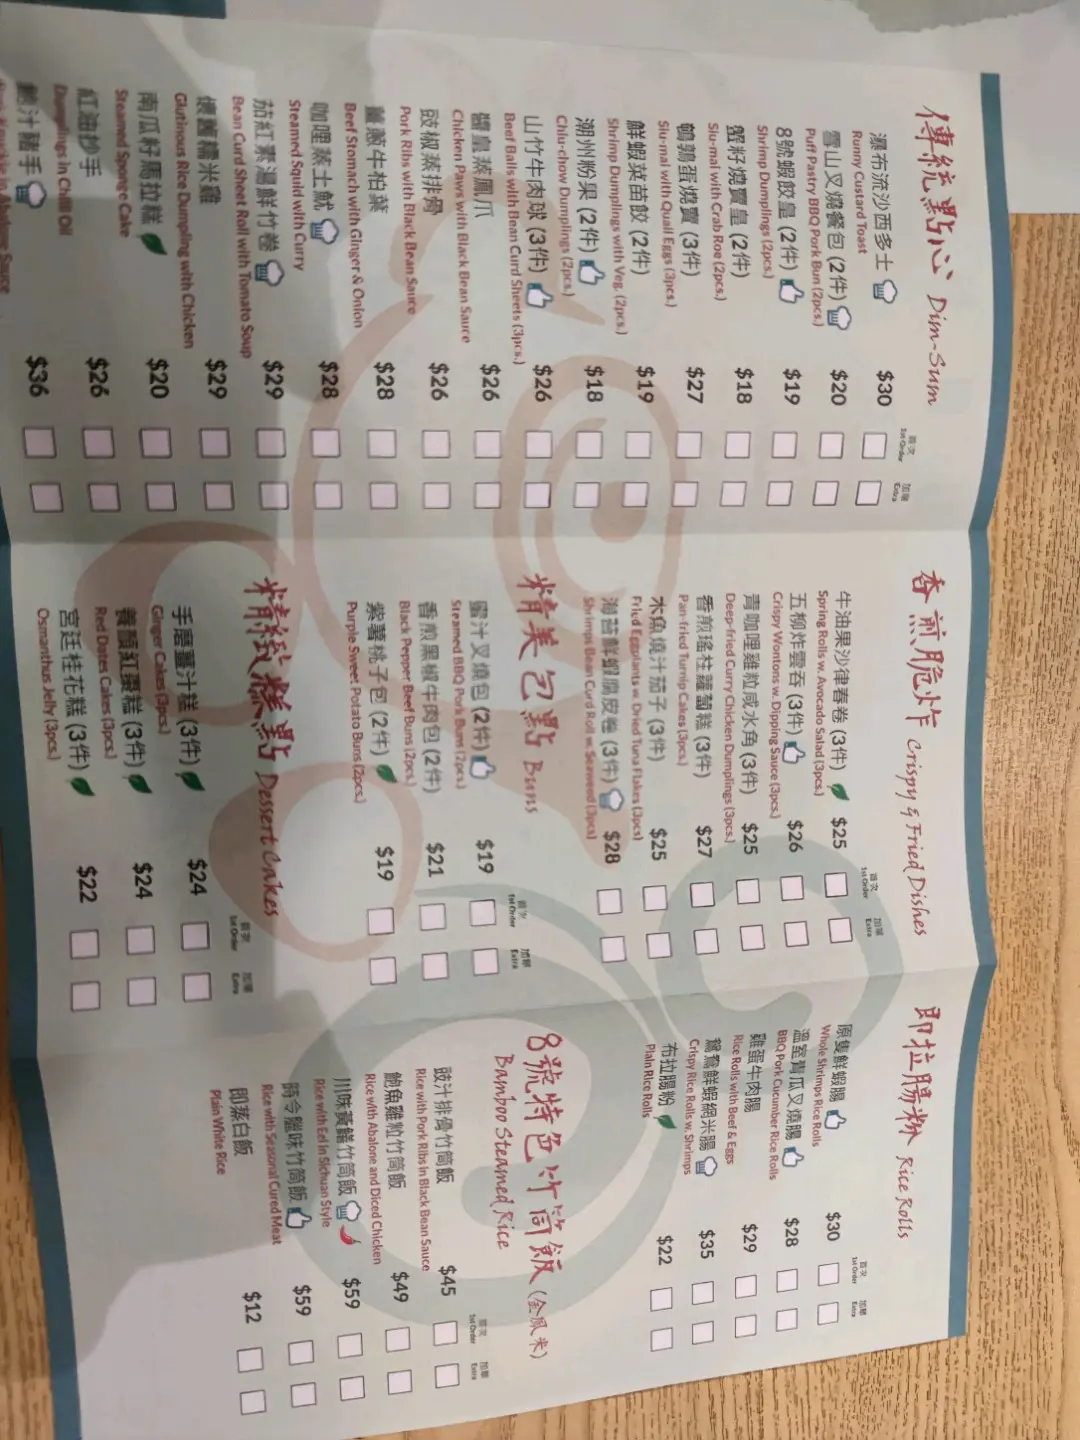 傳統點心 Dim-Sum
首次 加單
1st Order Extra
瀑布流沙西多士 $30
Runny Custard Toast
雪山叉燒餐包 (2件) $20
Puff Pastry BBQ Pork Bun (2pcs.)
8號蝦餃皇 (2件) $19
Shrimp Dumplings (2pcs.)
蟹籽燒賣皇 (2件) $18
Siu-mal with Crab Roe (2pcs.)
鵪鶉蛋燒賣 (3件) $27
Siu-mal with Quail Eggs (3pcs.)
鮮蝦菜苗餃 (2件) $19
Shrimp Dumplings with Veg. (2pcs.)
潮州粉果 (2件) $18
Chiu-chow Dumplings (2pcs.)
山竹牛肉球 (3件) $26
Beef Balls with Bean Curd Sheets (3pcs.)
醬皇蒸鳳爪 $26
Chicken Paws with Black Bean Sauce
豉椒蒸排骨 $26
Pork Ribs with Black Bean Sauce
薑蔥牛柏葉 $28
Beef Stomach with Ginger & Onion
咖哩蒸土魷 $28
Steamed Squid with Curry
茄紅素湯鮮竹卷 $29
Bean Curd Sheet Roll with Tomato Soup
懷舊糯米雞 $29
Glutinous Rice Dumpling with Chicken
南瓜籽馬拉糕 $20
Steamed Sponge Cake
紅油抄手 $26
Dumplings in Chilli Oil
鮑汁豬手 $36
Pork Knuckle in Abalone Sauce
香煎脆炸 Crispy & Fried Dishes
首次 加單
1st Order Extra
牛油果沙律春卷 (3件) $25
Spring Rolls w. Avocado Salad (3pcs.)
五柳炸雲吞 (3件) $26
Crispy Wontons w. Dipping Sauce (3pcs.)
青咖哩雞粒咸水角 (3件) $25
Deep-fried Curry Chicken Dumplings (3pcs.)
香煎瑤柱蘿蔔糕 (3件) $27
Pan-fried Turnip Cakes (3pcs.)
木魚燒汁茄子 (3件) $25
Fried Eggplants w. Dried Tuna Flakes (3pcs)
海苔鮮蝦腐皮卷 (3件) $28
Shrimps Bean Curd Roll w. Seaweed (3pcs)
精美包點 Buns
首次 加單
1st Order Extra
蜜汁叉燒包 (2件) $19
Steamed BBQ Pork Buns (2pcs.)
香煎黑椒牛肉包 (2件) $21
Black Pepper Beef Buns (2pcs.)
紫薯桃子包 (2件) $19
Purple Sweet Potato Buns (2pcs.)
精緻糕點 Dessert Cakes
首次 加單
1st Order Extra
手磨薑汁糕 (3件) $24
Ginger Cakes (3pcs.)
養顏紅棗糕 (3件) $24
Red Dates Cakes (3pcs.)
宮廷桂花糕 (3件) $22
Osmanthus Jelly (3pcs.)
即拉腸粉 Rice Rolls
首次 加單
1st Order Extra
原隻鮮蝦腸 $30
Whole Shrimps Rice Rolls
溫室青瓜叉燒腸 $28
BBQ Pork Cucumber Rice Rolls
雞蛋牛肉腸 $29
Rice Rolls with Beef & Eggs
鴛鴦鮮蝦網米腸 $35
Crispy Rice Rolls w. Shrimps
布拉腸粉 $22
Plain Rice Rolls
8號特色竹筒飯 (金鳳米)
Bamboo Steamed Rice
首次 加單
1st Order Extra
豉汁排骨竹筒飯 $45
Rice with Pork Ribs in Black Bean Sauce
鮑魚雞粒竹筒飯 $49
Rice with Abalone and Diced Chicken
川味黃鱔竹筒飯 $59
Rice with Eel in Sichuan Style
時令臘味竹筒飯 $59
Rice with Seasonal Cured Meat
即蒸白飯 $12
Plain White Rice